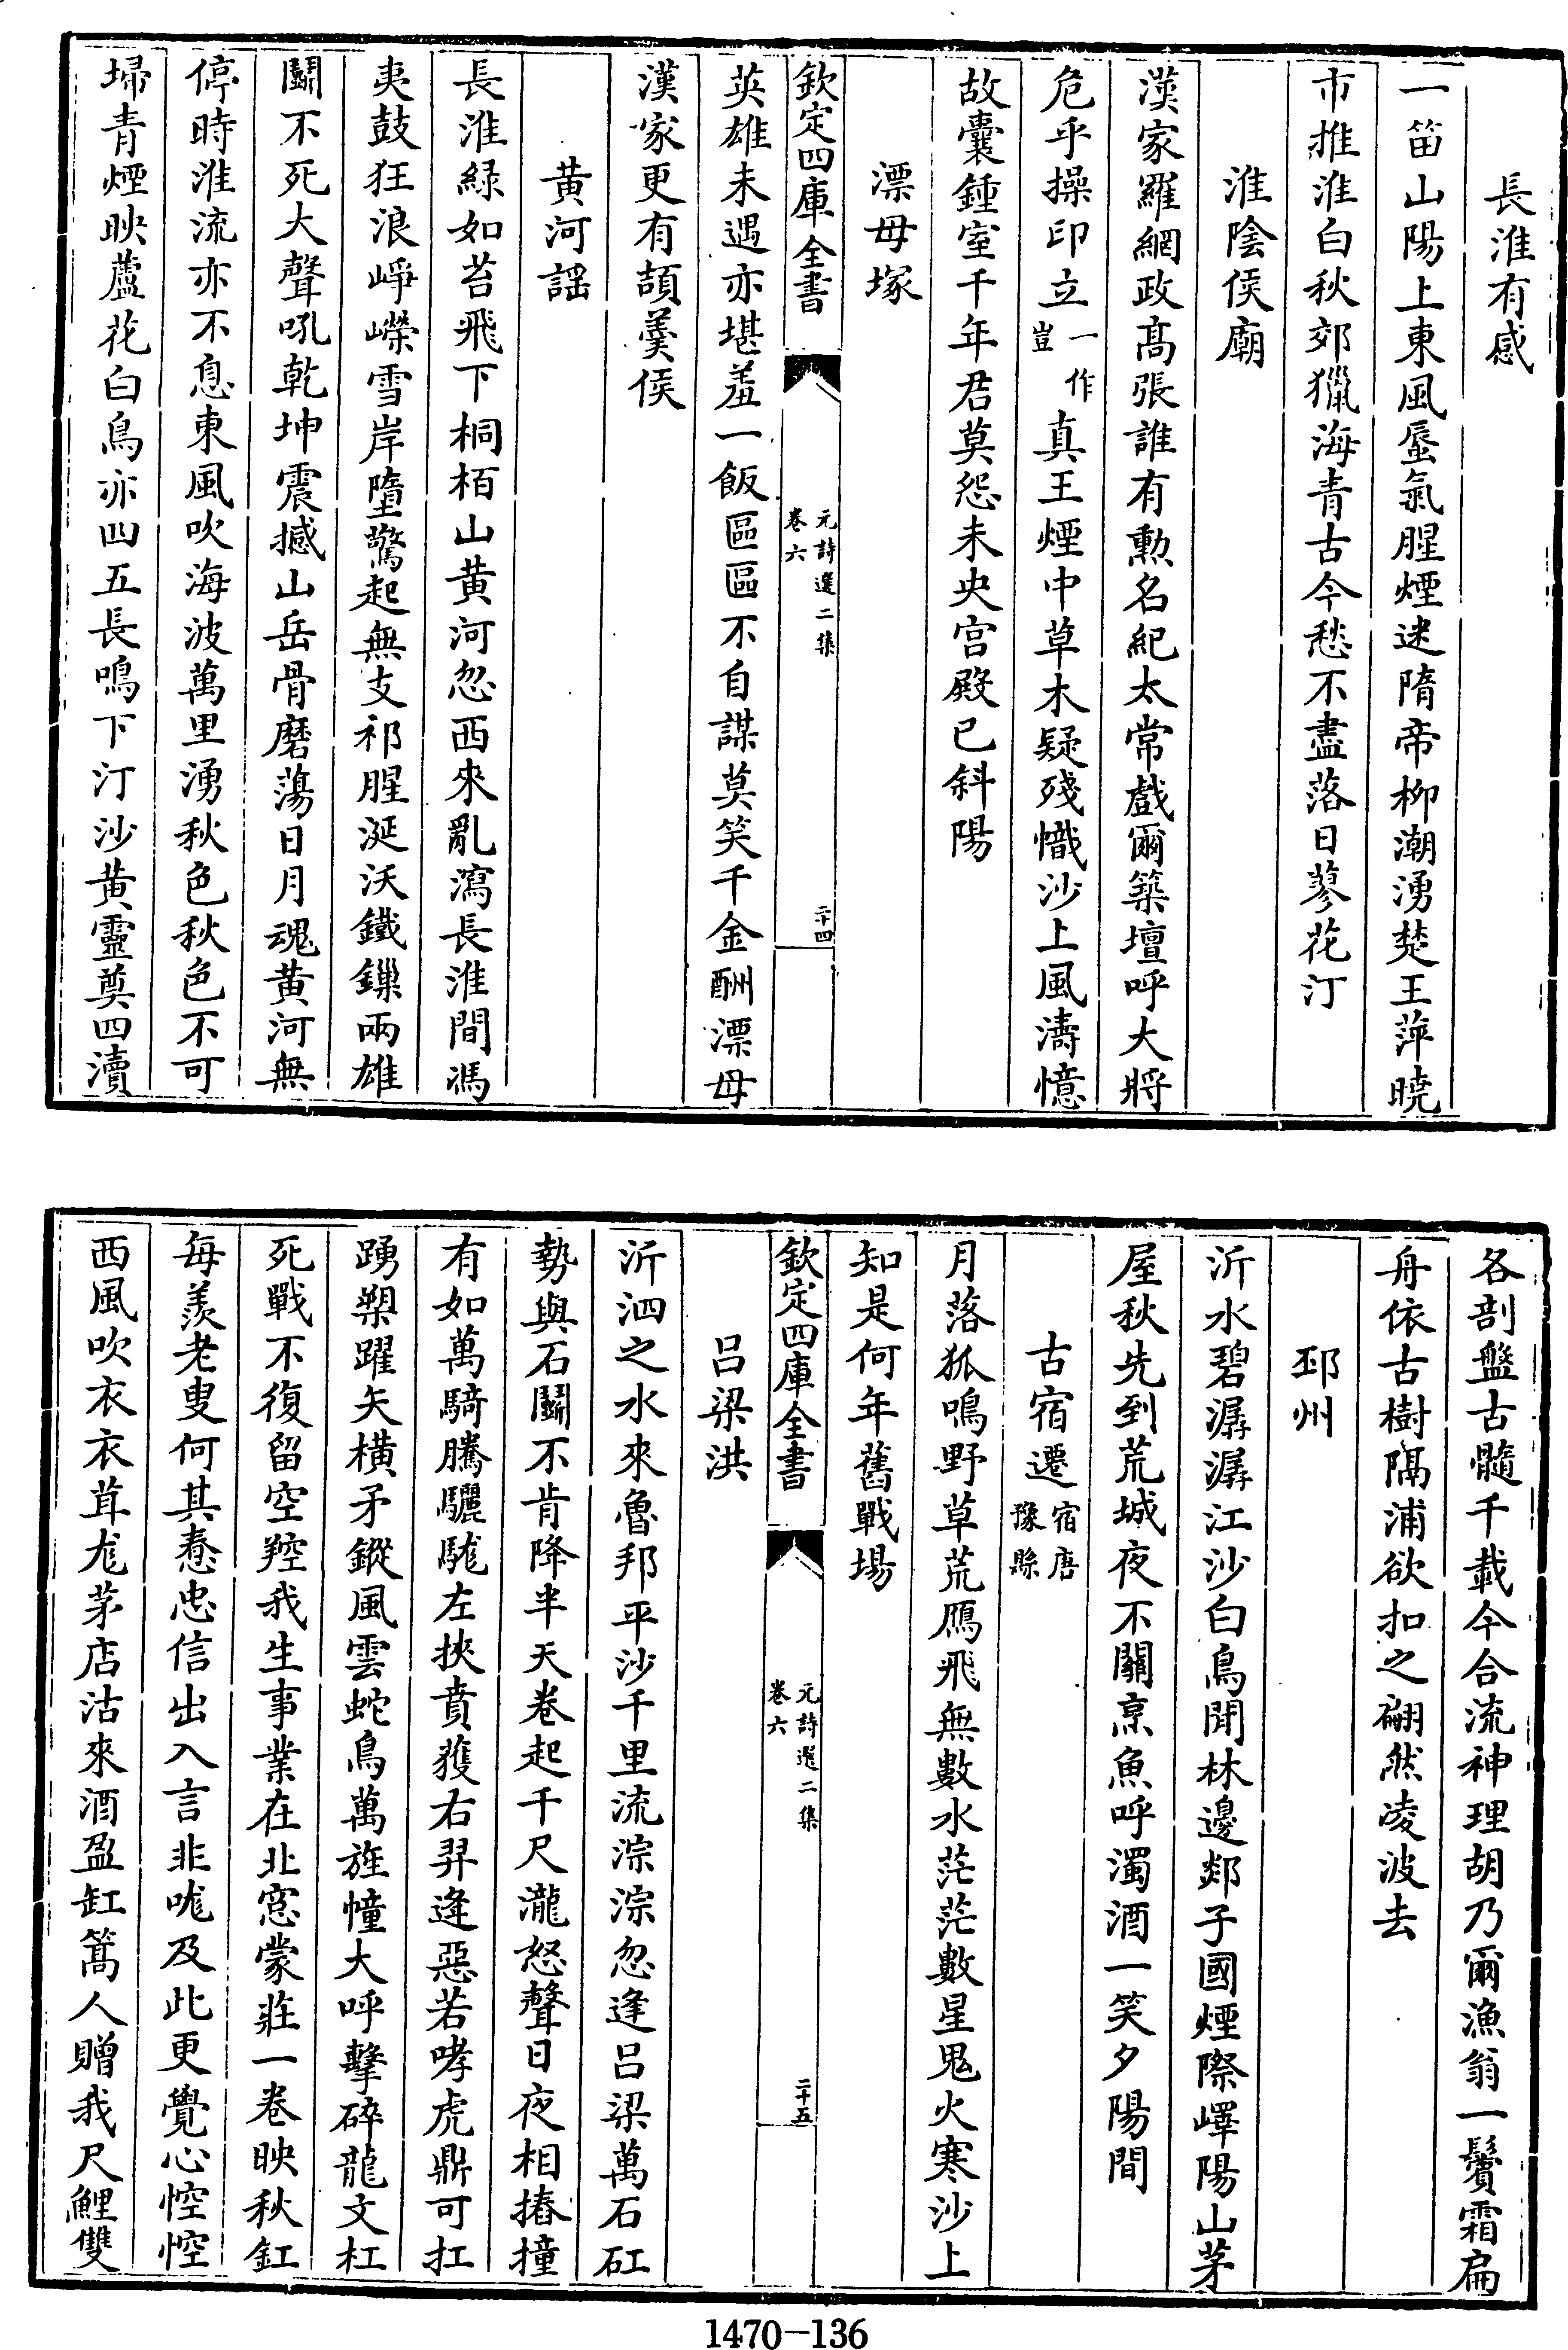 長淮有感
一笛山陽上東風蜃氣腥煙迷隋帝柳潮湧楚王萍曉
市推淮白秋郊獵海青古今愁不盡落日蓼花汀
淮陰侯廟
漢家羅網政髙張誰有勲名紀太常戲爾築壇呼大將
危乎操印立一作豈真王煙中草木疑殘幟沙上風濤憶
故囊鍾室千年君莫怨未央宫殿已斜陽
漂母塚
欽定四庫全書
元詩選二集
卷六
二十四
英雄未遇亦堪羞一飯區區不自謀莫笑千金酬漂母
漢家更有頡羹侯
黄河謡
長淮緑如苔飛下桐栢山黄河忽西來亂瀉長淮間馮
夷鼓狂浪崢嶸雪岸墮驚起無支祁腥涎沃鐵鏁兩雄
鬭不死大聲吼乾坤震撼山岳骨磨蕩日月魂黄河無
停時淮流亦不息東風吹海波萬里湧秋色秋色不可
埽青煙映蘆花白鳥亦四五長鳴下汀沙黄靈奠四瀆
各剖盤古髓千載今合流神理胡乃爾漁翁一鬢霜扁
舟依古樹隔浦欲扣之翩然凌波去
邳州
沂水碧潺潺江沙白鳥閒林邊郯子國煙際嶧陽山茅
屋秋先到荒城夜不關烹魚呼濁酒一笑夕陽間
古宿遷宿唐豫縣
月落狐鳴野草荒鴈飛無數水茫茫數星鬼火寒沙上
知是何年舊戰場
欽定四庫全書
元詩選二集
卷六
二十五
吕梁洪
沂泗之水來魯邦平沙千里流淙淙忽逢吕梁萬石矼
勢與石鬭不肯降半天卷起千尺瀧怒聲日夜相摏撞
有如萬騎騰驪駹左挾賁獲右羿逄惡若哮虎鼎可扛
踴槊躍矢横矛鏦風雲蛇鳥萬旌幢大呼擊碎龍文杠
死戰不復留空羫我生事業在北窓蒙莊一卷映秋釭
每羨老叟何其惷忠信出入言非哤及此更覺心悾悾
西風吹衣衣茸尨茅店沽來酒盈缸篙人贈我尺鯉雙
1470-136